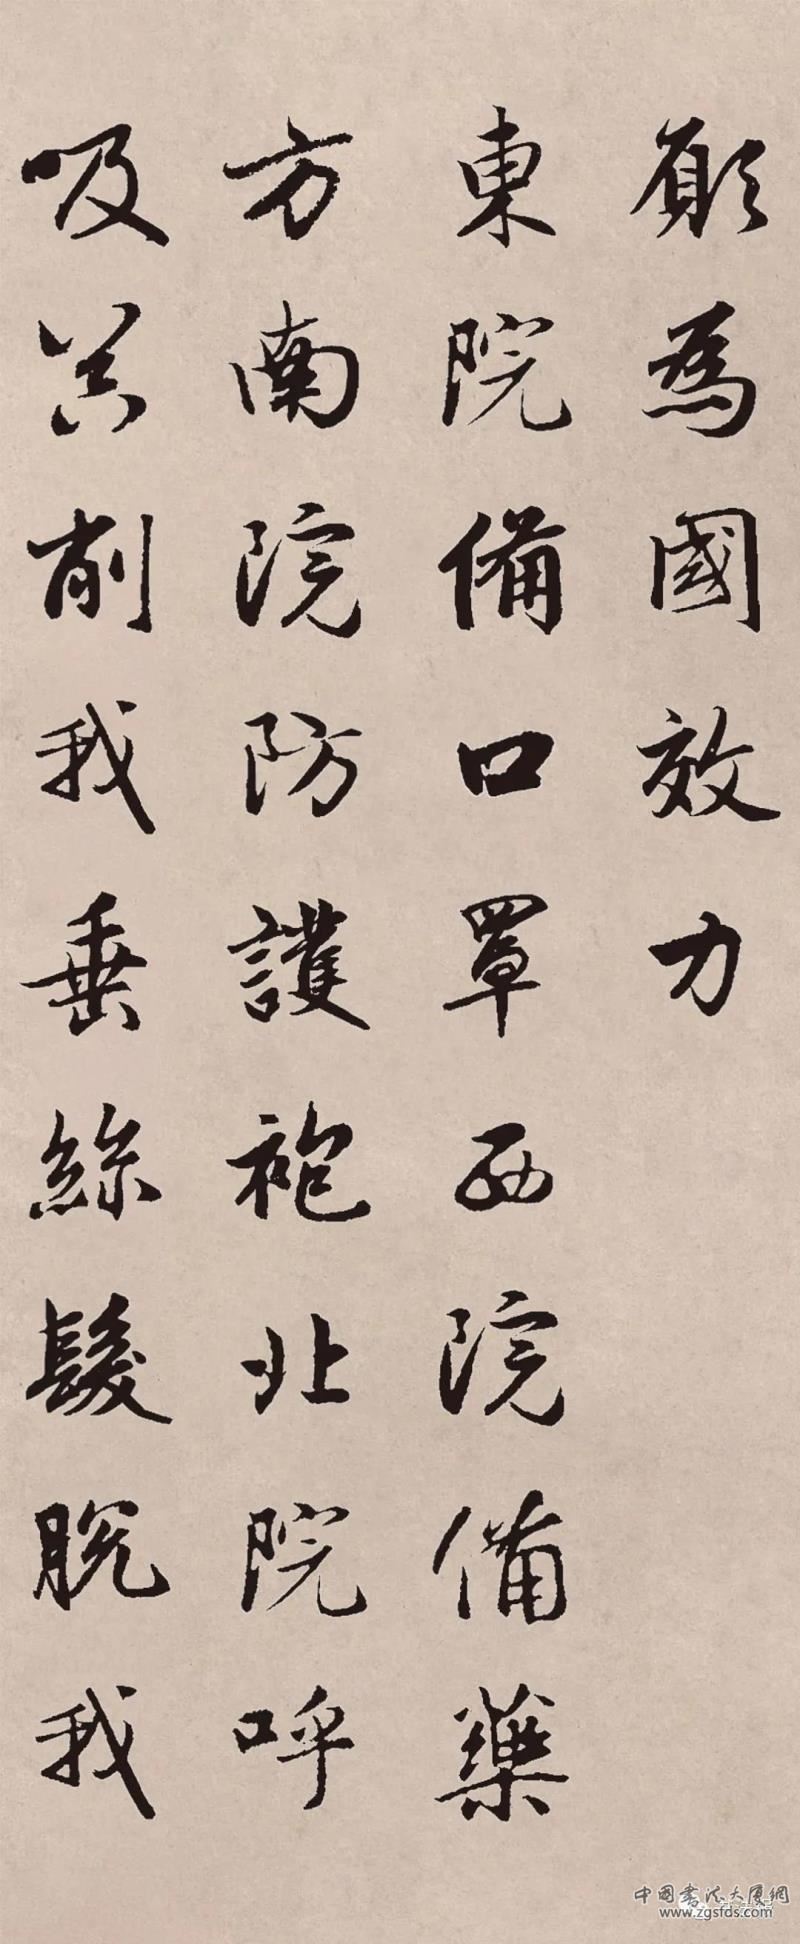 願為國效力
東院備口罩西院備藥
方南院防護袍北院呼
吸器削我垂絲髮脫我
中国書法大厦網
www.zgsfds.com